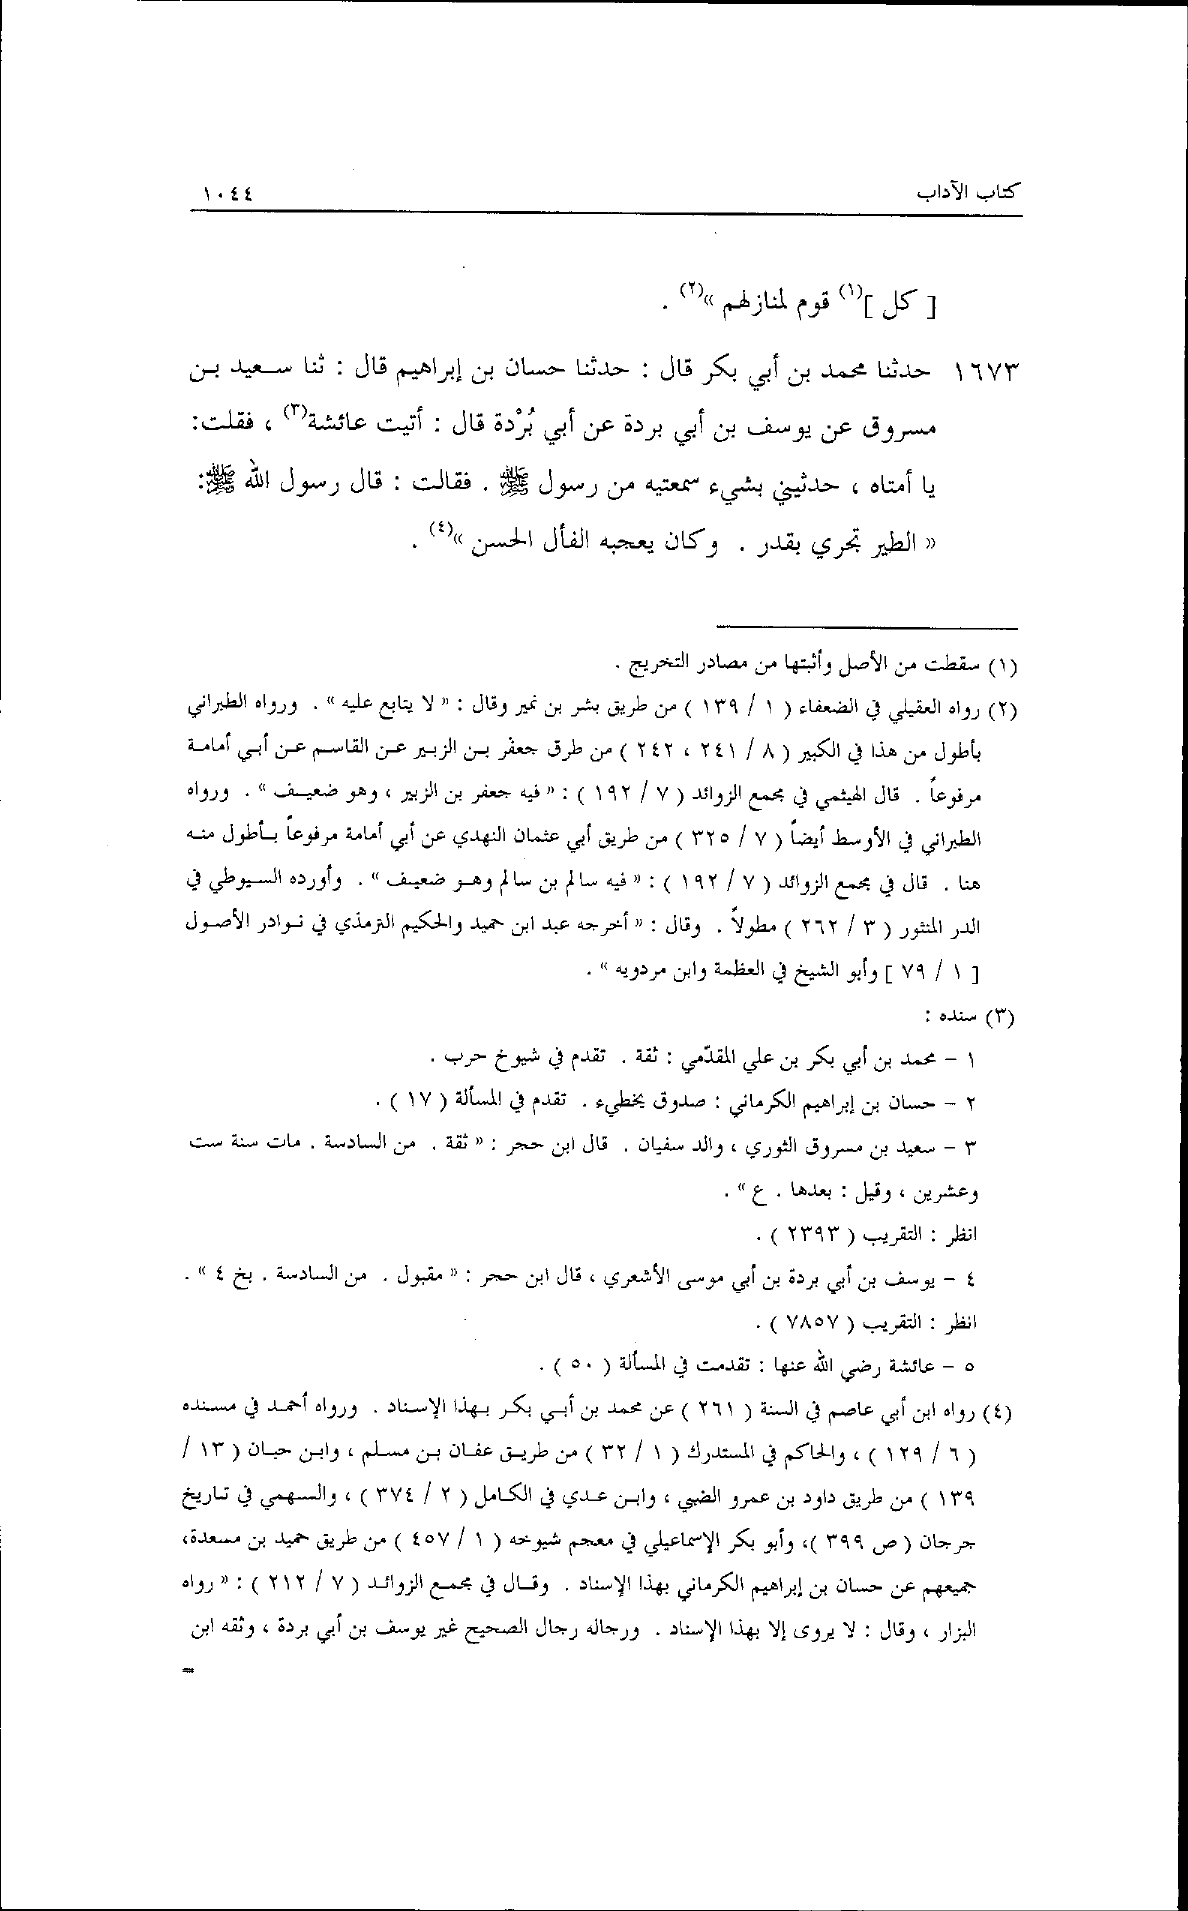 كتاب الآداب ١٠٤٤
[ كل ](١) قوم لمنازلهم »(٢) .
١٦٧٣ حدثنا محمد بن أبي بكر قال : حدثنا حسان بن إبراهيم قال : ثنا سعيد بن
مسروق عن يوسف بن أبي بردة عن أبي بُرْدة قال : أتيت عائشة(٣) ، فقلت:
يا أمتاه ، حدثيني بشيء سمعتيه من رسول ﷺ . فقالت : قال رسول الله ﷺ:
« الطير تجري بقدر . وكان يعجبه الفأل الحسن »(٤) .
(١) سقطت من الأصل وأثبتها من مصادر التخريج .
(٢) رواه العقيلي في الضعفاء ( ١ / ١٣٩ ) من طريق بشر بن نمير وقال : « لا يتابع عليه » . ورواه الطبراني
بأطول من هذا في الكبير ( ٨ / ٢٤١ ، ٢٤٢ ) من طرق جعفر بن الزبير عن القاسم عن أبي أمامة
مرفوعاً . قال الهيثمي في مجمع الزوائد ( ٧ / ١٩٢ ) : « فيه جعفر بن الزبير ، وهو ضعيف » . ورواه
الطبراني في الأوسط أيضاً ( ٧ / ٣٢٥ ) من طريق أبي عثمان النهدي عن أبي أمامة مرفوعاً بأطول منه
هنا . قال في مجمع الزوائد ( ٧ / ١٩٢ ) : « فيه سالم بن سالم وهو ضعيف » . وأورده السيوطي في
الدر المنثور ( ٣ / ٢٦٢ ) مطولاً . وقال : « أخرجه عبد ابن حميد والحكيم الترمذي في نوادر الأصول
[ ١ / ٧٩ ] وأبو الشيخ في العظمة وابن مردويه » .
(٣) سنده :
١ – محمد بن أبي بكر بن علي المقدّمي : ثقة . تقدم في شيوخ حرب .
٢ – حسان بن إبراهيم الكرماني : صدوق يخطيء . تقدم في المسألة ( ١٧ ) .
٣ – سعيد بن مسروق الثوري ، والد سفيان . قال ابن حجر : « ثقة . من السادسة . مات سنة ست
وعشرين ، وقيل : بعدها . ع » .
انظر : التقريب ( ٢٣٩٣ ) .
٤ – يوسف بن أبي بردة بن أبي موسى الأشعري ، قال ابن حجر : « مقبول . من السادسة . بخ ٤ » .
انظر : التقريب ( ٧٨٥٧ ) .
٥ – عائشة رضي الله عنها : تقدمت في المسألة ( ٥٠ ) .
(٤) رواه ابن أبي عاصم في السنة ( ٢٦١ ) عن محمد بن أبي بكر بهذا الإسناد . ورواه أحمد في مسنده
( ٦ / ١٢٩ ) ، والحاكم في المستدرك ( ١ / ٣٢ ) من طريق عفان بن مسلم ، وابن حبان ( ١٣ /
١٣٩ ) من طريق داود بن عمرو الضبي ، وابن عدي في الكامل ( ٢ / ٣٧٤ ) ، والسهمي في تاريخ
جرجان ( ص ٣٩٩ )، وأبو بكر الإسماعيلي في معجم شيوخه ( ١ / ٤٥٧ ) من طريق حميد بن مسعدة،
جميعهم عن حسان بن إبراهيم الكرماني بهذا الإسناد . وقال في مجمع الزوائد ( ٧ / ٢١٢ ) : « رواه
البزار ، وقال : لا يروى إلا بهذا الإسناد . ورجاله رجال الصحيح غير يوسف بن أبي بردة ، وثقه ابن
=